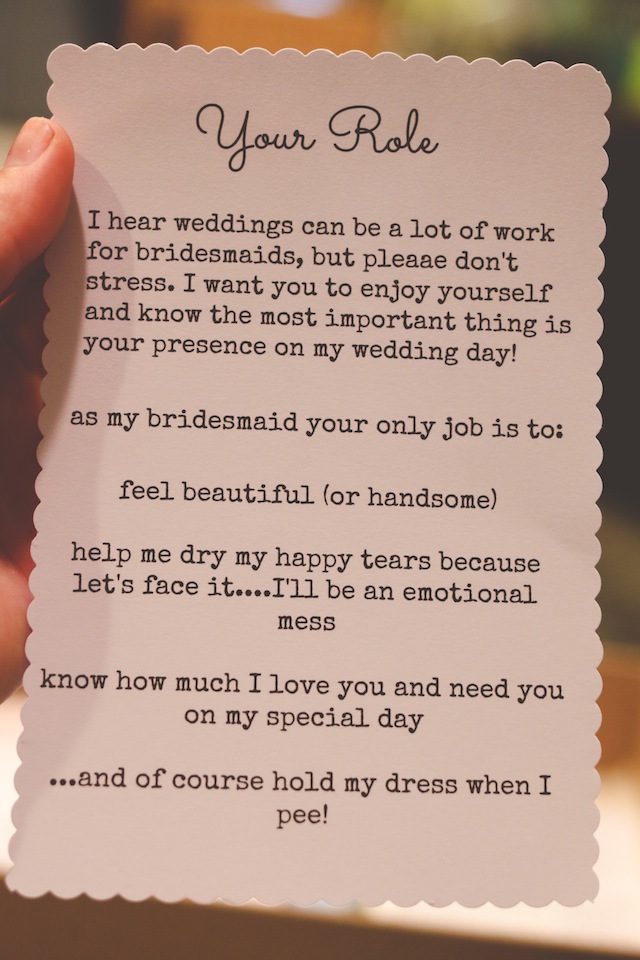 Your Role
I hear weddings can be a lot of work
for bridesmaids, but pleaae don't
stress. I want you to enjoy yourself
and know the most important thing is
your presence on my wedding day!
as my bridesmaid your only job is to:
feel beautiful (or handsome)
help me dry my happy tears because
let's face it....I'll be an emotional
mess
know how much I love you and need you
on my special day
...and of course hold my dress when I
pee!